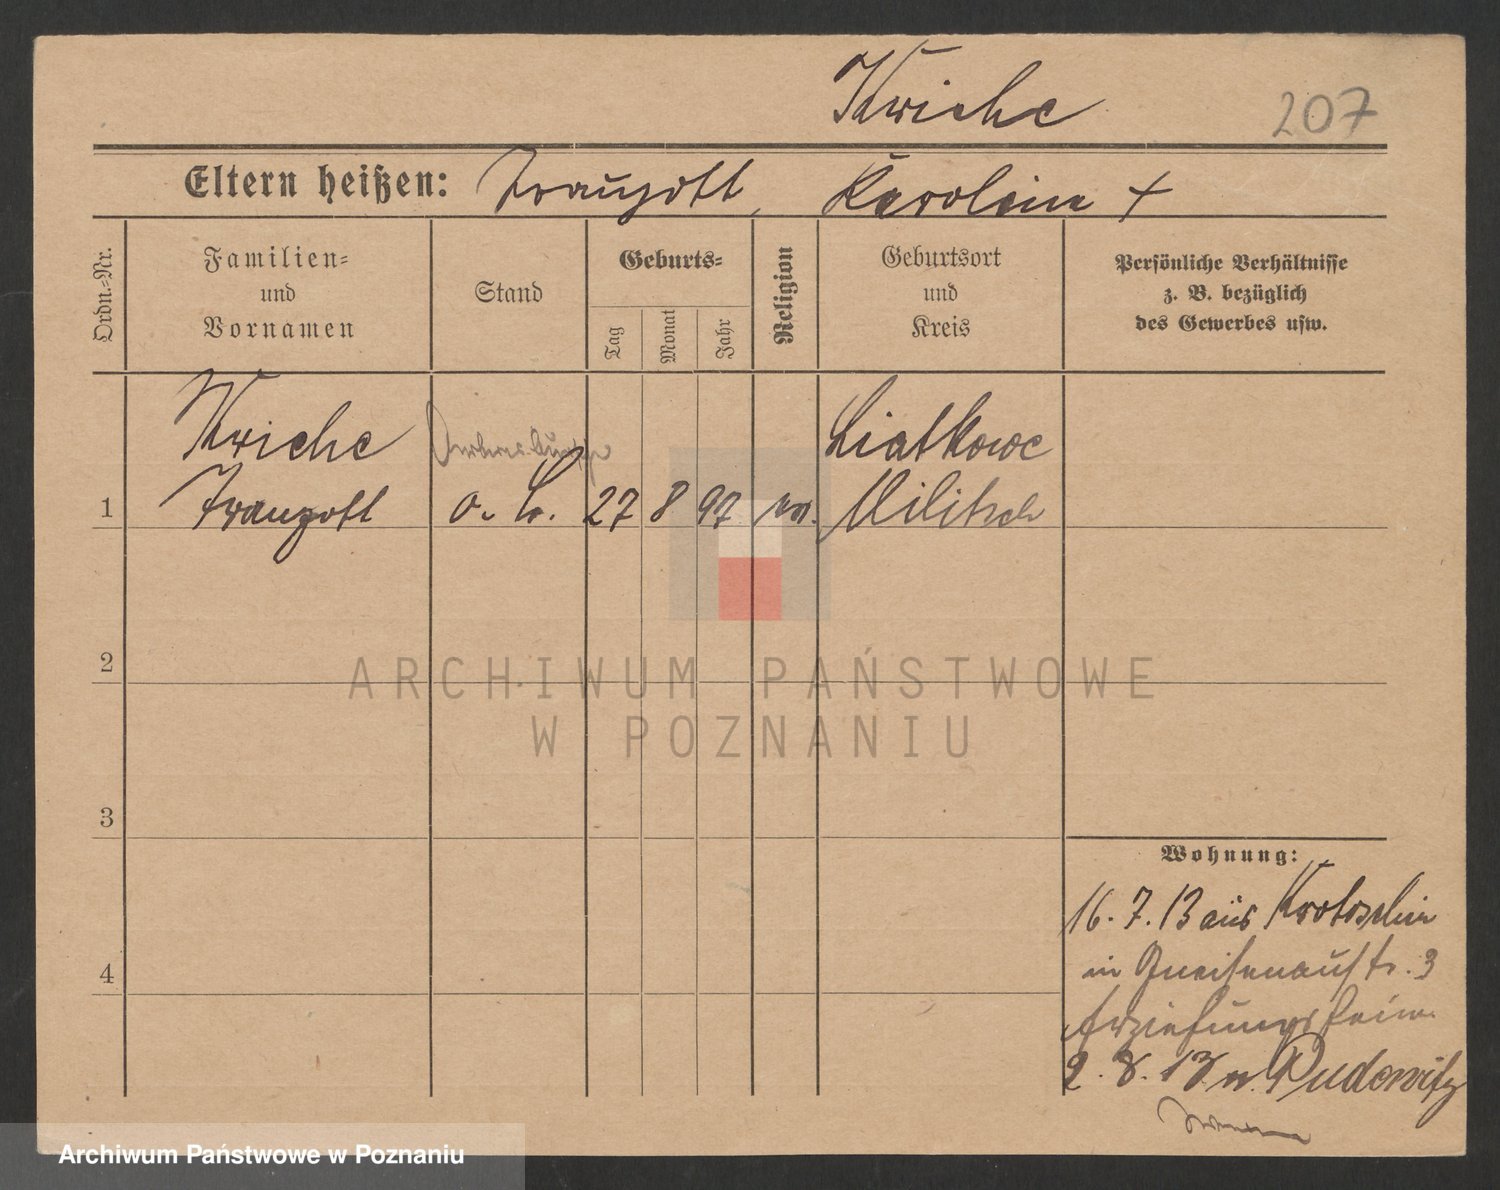 Kriche
207
Eltern heißen: Traugott, Karolina +
Ordn.-Nr.
Familien-
und
Vornamen
Stand
Geburts-
Tag
Monat
Jahr
Religion
Geburtsort
und
Kreis
Persönliche Verhältnisse
z. B. bezüglich
des Gewerbes usw.
Kriche
Liatkowe
1
Traugott
o. L.
27
8
97
ev.
Militsch
2
3
4
ARCHIWUM PAŃSTWOWE
W POZNANIU
Wohnung:
16. 7. 13 aus Krotoschin
in Gneisenaustr. 3
Erziehungsheim
2. 8. 13 n. Pudewitz
Archiwum Państwowe w Poznaniu